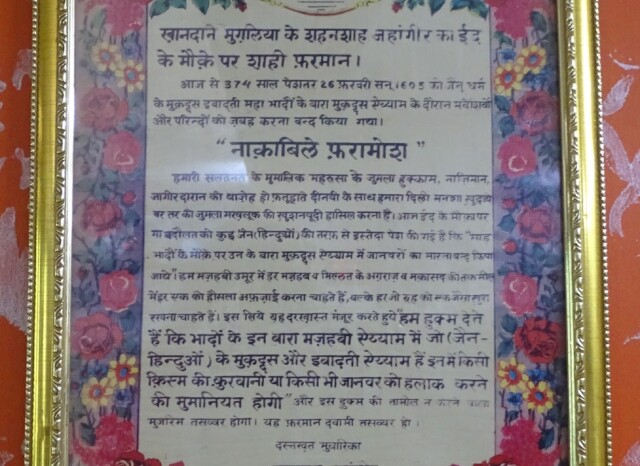 ख़ानदाने मुग़लिया के शहनशाह जहांगीर का ईद
के मौक़े पर शाही फ़रमान।
आज से 374 साल पेशतर 26 फ़रवरी सन् 1605 को जैन धर्म
के मुक़द्दस इबादती महा भादों के बारा मुक़द्दस ऐय्याम के दौरान मवेशीयों
और परिन्दों की ज़बह करना बन्द किया गया।
"नाक़ाबिले फ़रामोश"
हमारी सलतनत के मुमालिक महरुसा के जुमला हुक्काम, नाज़िमान,
जागीरदारान को वाज़ेह हो फ़तूहाते दीनवी के साथ हमारा दिली मनशा खुदाए
बर तर की जुमला मख़लूक़ की खुशनूदी हासिल करना है। आज ईद के मौक़ा पर
मा बदौलत को कुछ जैन (हिन्दुओं) की तरफ़ से इस्तेदा पेश की गई है कि "माह
भादों के मौक़े पर उन के बारा मुक़द्दस ऐय्याम में जानवरों का मारना बन्द किया
जाये" हम मज़हबी उमूर में हर मज़हब व मिल्लत के अग़राज़ व मक़ासद की तकमील
में हर एक की हौसला अफ़ज़ाई करना चाहते हैं, बल्के हर ज़ी रूह को
रखना चाहते हैं। इस लिये यह दरख़ास्त मंजूर करते हुये "हम हुक्म देते
हैं कि भादों के इन बारा मज़हबी ऐय्याम में जो (जैन-
हिन्दुओं) के मुक़द्दस और इबादती ऐय्याम हैं इनमें किसी
क़िस्म की क़ुरबानी या किसी भी जानवर को हलाक करने
की मुमानियत होगी" और इस हुक्म की तामील न करने वाला
मुजरिम तसव्वर होगा। यह फ़रमान दवामी तसव्वर हो।
दस्तख़त मुबारिका